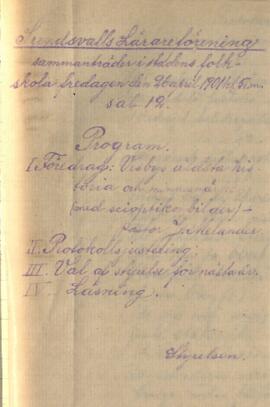 Sundsvalls Lärareförening
sammanträder i stadens folk-
skola fredagen den 26 april 1901 kl. 5 em.
sal 12.
Program.
I Föredrag: Visbys äldsta his-
toria och minnesmä
(med scioptikonbilder) –
Pastor J.
II. Protokollsjustering.
III. Val af styrelse för nästa år.
IV. Läsning.
Styrelsen.